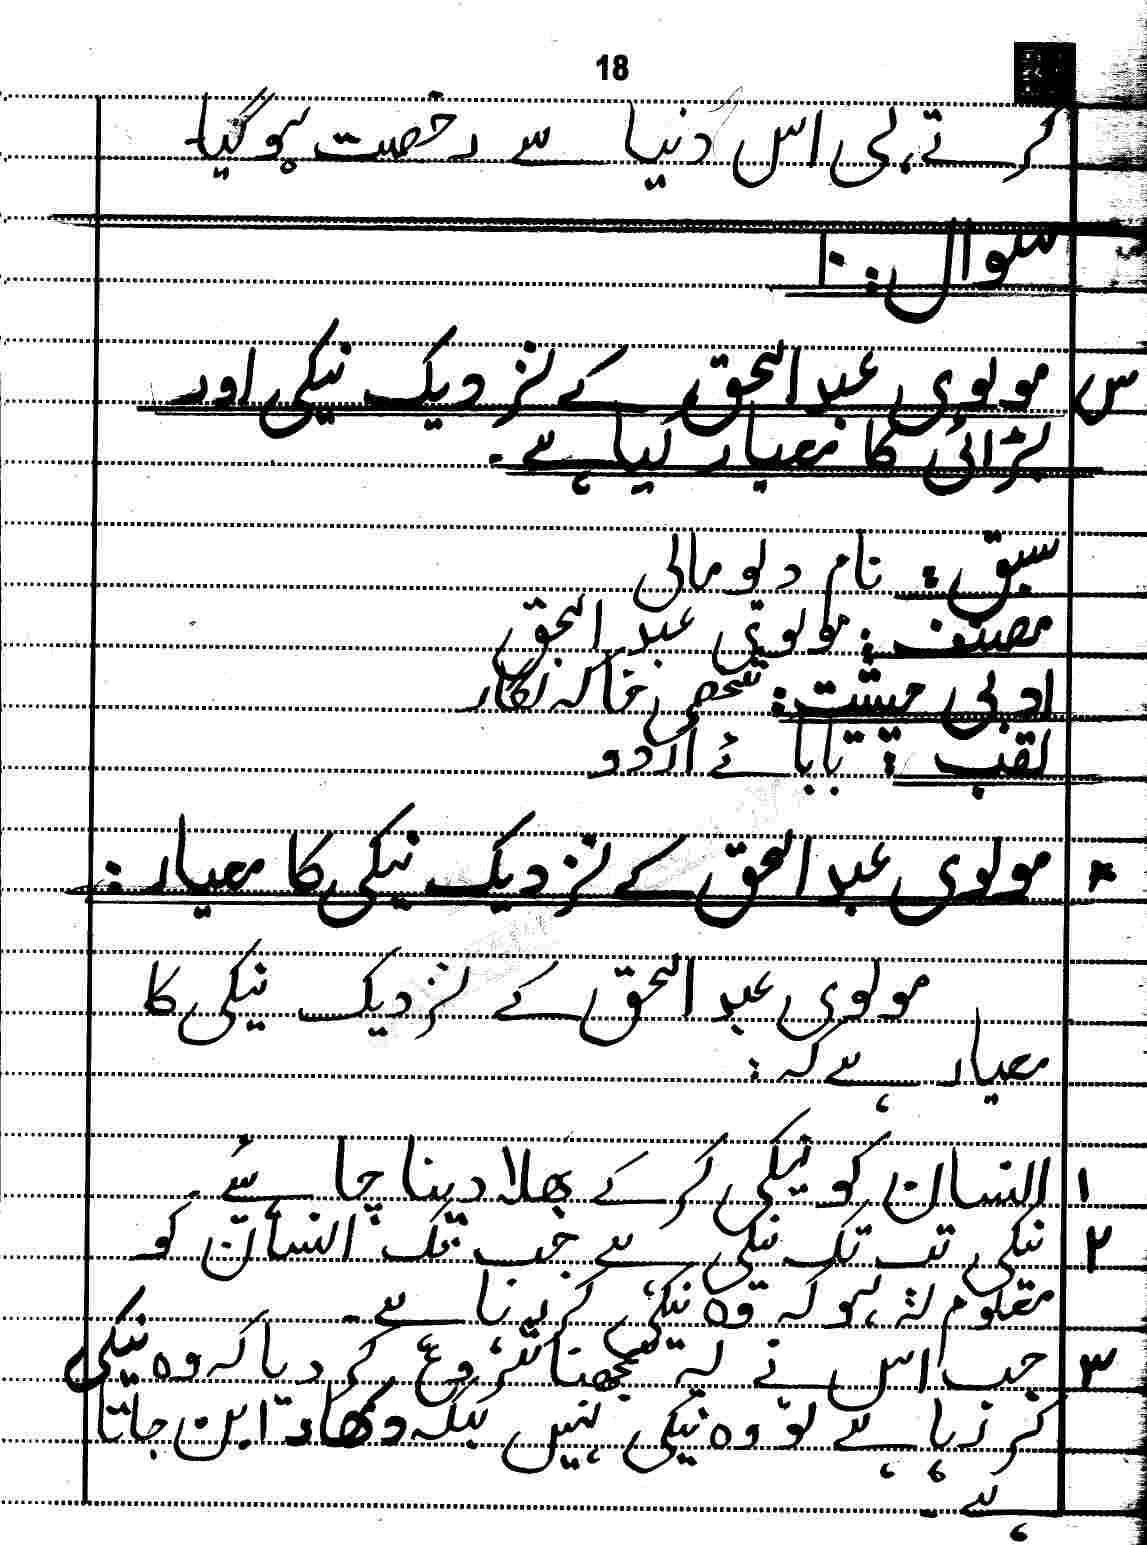 18
کرتے ہی اس دنیا سے رخصت ہو گیا۔
سوال:۔ ۱
س مولوی عبد الحق کے نزدیک نیکی اور
بڑائی کا معیار کیا ہے۔
سبق: نام دیو مالی
مصنف: مولوی عبد الحق
ادبی حیثیت: شخصی خاکہ نگار
لقب: بابائے اردو
* مولوی عبد الحق کے نزدیک نیکی کا معیار:
مولوی عبد الحق کے نزدیک نیکی کا
معیار ہے کہ:
۱ انسان کو نیکی کر کے بھلا دینا چاہئے۔
۲ نیکی تب تک نیکی ہے جب تک انسان کو
معلوم نہ ہو کہ وہ نیکی کر رہا ہے۔
۳ جب اس نے یہ سمجھنا شروع کر دیا کہ وہ نیکی
کر رہا ہے تو وہ نیکی نہیں بلکہ دکھاوا بن جاتا
ہے۔